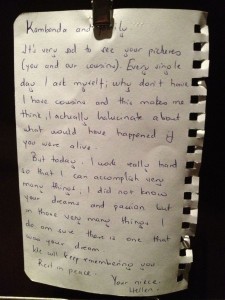 Kambanda and family
It's very sad to see your pictures
(you and our cousins). Every single
day I ask myself; why don't have
I have cousins and this makes me
think, I actually halucinate about
what would have happened if
you were alive.
But today. I work really hard
so that I can accomplish very
many things; I did not know
your dreams and passion but
in those very many things I
do am sure there is one that
was your dream
We will keep remembering you.
Rest in peace.
Your niece.
Hellen.